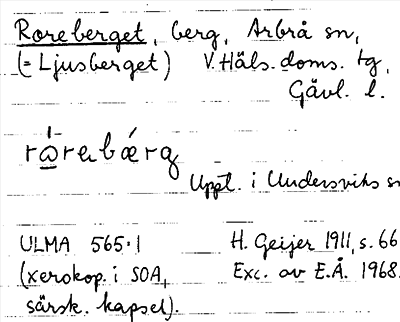 Roreberget, berg, Arbrå sn,
(= Ljusberget) V. Häls. doms. tg,
Gävl. l.
rὼrabǽrg
Uppt. i Undersviks sn
ULMA 565:1 H. Geijer 1911, s. 66
(xerokop. i SOA, Exc. av E.Å. 1968.
särsk. kapsel).